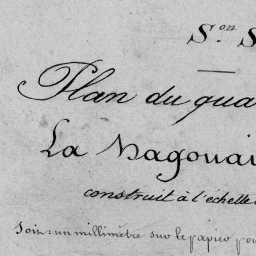 S.on S
Plan du qua
La Nagouai
construit à l'échelle
Soit: un millimètre sur le papier pou